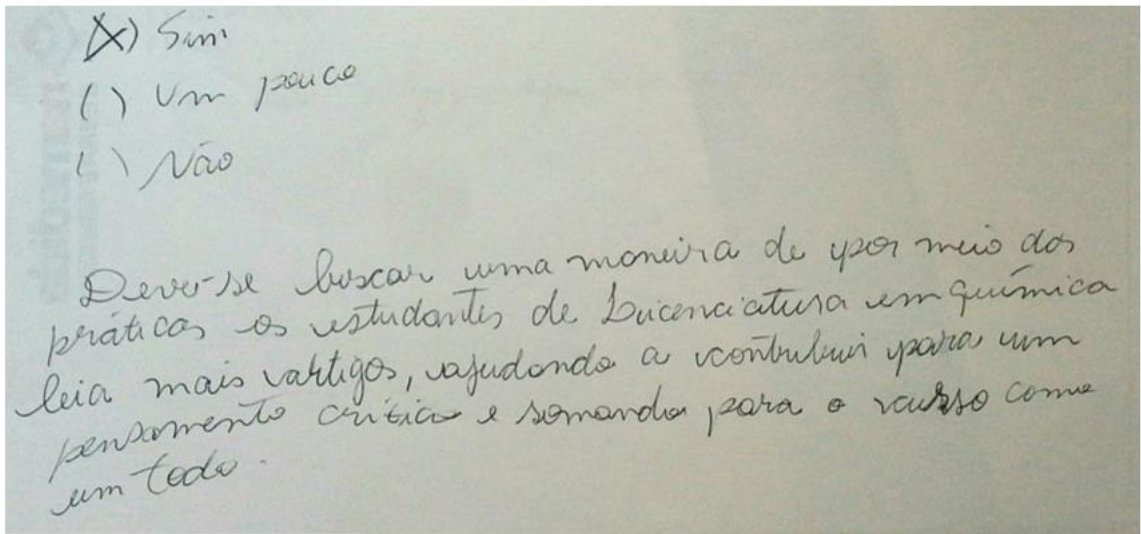 (X) Sim
( ) Um pouco
( ) Não
Deve-se buscar uma maneira de por meio das
práticas os estudantes de Licenciatura em química
leia mais artigos, ajudando a contribuir para um
pensamento critico e somando para o curso como
um todo.